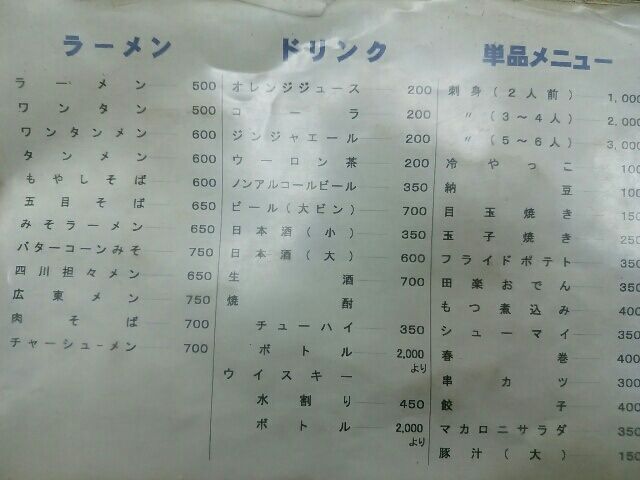 ラーメン
ラーメン 500
ワンタン 500
ワンタンメン 600
タンメン 600
もやしそば 600
五目そば 650
みそラーメン 650
バターコーンみそ 750
四川担々メン 650
広東メン 750
肉そば 700
チャーシューメン 700
ドリンク
オレンジジュース 200
コーラ 200
ジンジャエール 200
ウーロン茶 200
ノンアルコールビール 350
ビール(大ビン) 700
日本酒(小) 350
日本酒(大) 600
生酒 700
焼酎
チューハイ 350
ボトル 2,000より
ウイスキー
水割り 450
ボトル 2,000より
単品メニュー
刺身(2人前) 1,000
〃(3~4人) 2,000
〃(5~6人) 3,000
冷やっこ 100
納豆 100
目玉焼き 150
玉子焼き 250
フライドポテト 350
田楽おでん 350
もつ煮込み 400
シューマイ 350
春巻 400
串カツ 300
餃子 400
マカロニサラダ 350
豚汁(大) 150